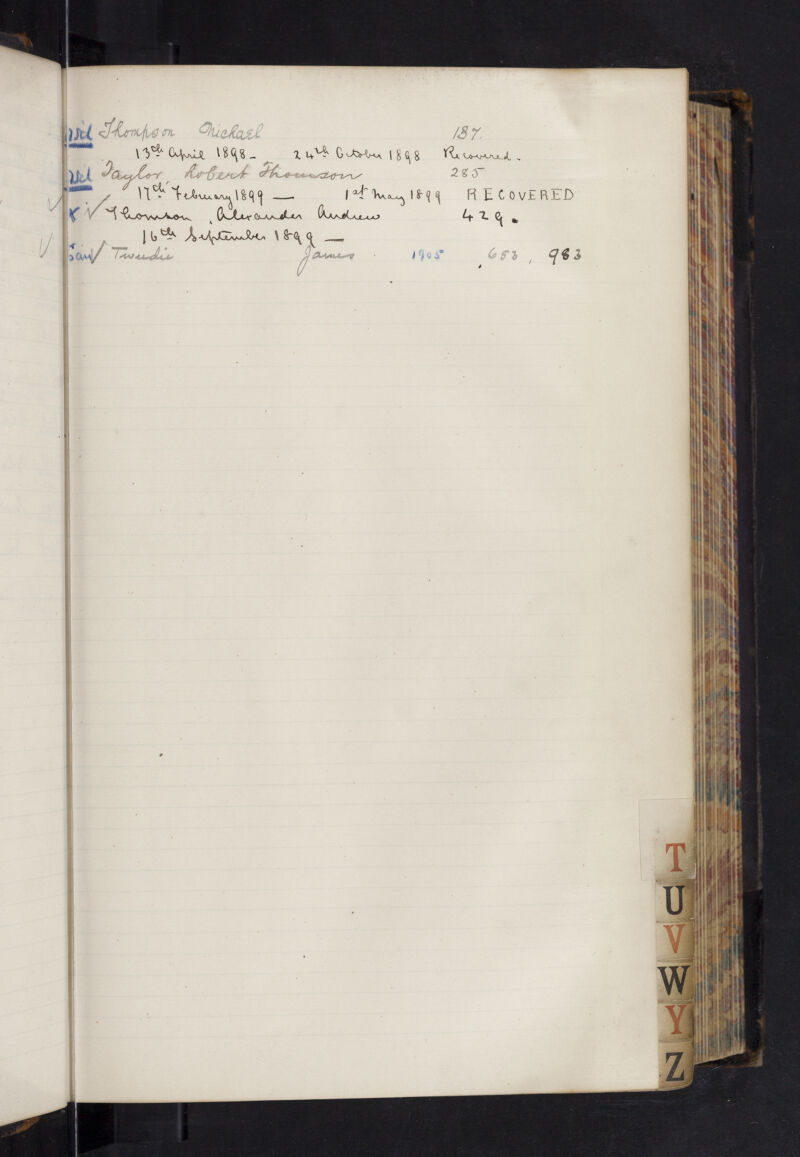 rel Thompson Michael 137.
13th April 1898 - 24th October 1898 Recovered.
rel Taylor Robert Thomson 285
17th February 1899 — 1st May 1899 RECOVERED
Thomson, Alexander Andrew 429.
16th September 1899 —
Tweedie James 1905 653, 983
T
U
V
W
Y
Z